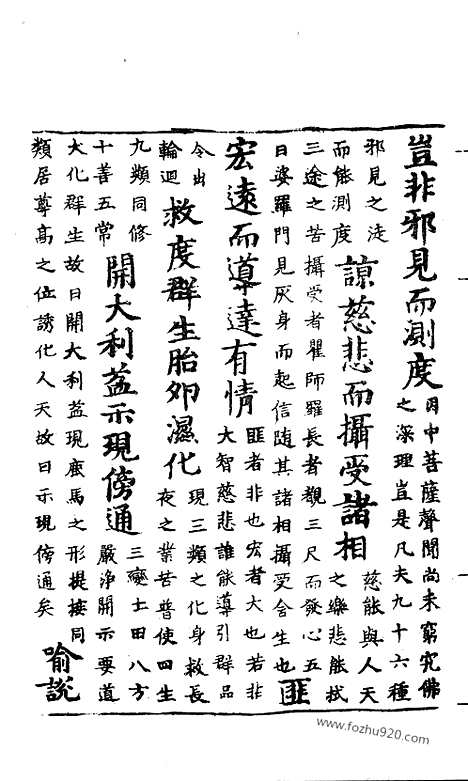 豈非邪見而測度
因中菩薩聲聞尚未窮究佛
之深理豈是凡夫九十六種
邪見之徒
而能測度
諒慈悲而攝受諸相
慈能與人天
之樂悲能拔
三途之苦攝受者瞿師羅長者觀三尺而發心五
百婆羅門見灰身而起信隨其諸相攝受含生也
匪
宏遠而導達有情
匪者非也宏者大也若非
大智慈悲誰能導引群品
令出
輪迴
救度群生胎卵濕化
現三類之化身救長
夜之業苦普使四生
九類同修
十善五常
開大利益示現傍通
三土田八方
嚴淨開示要道
大化群生故曰開大利益現鹿馬之形提接同
類居尊高之位誘化人天故曰示現傍通矣
喻説
www.fozhu920.com